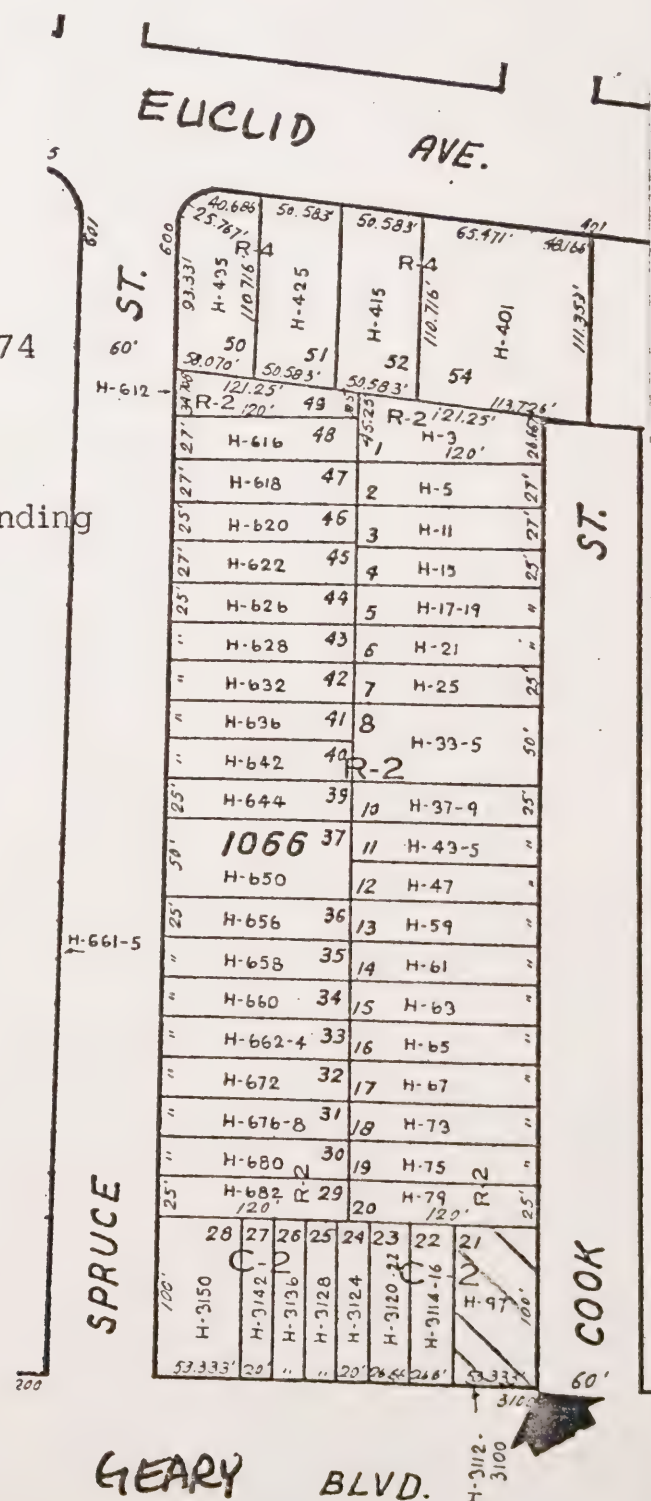 EUCLID AVE.
5
601
600
40.686
25.767'
50.583'
50.583'
65.471'
48.166
401
R-4
R-4
93.331
H-435
110.716'
H-425
H-415
110.716'
H-401
111.353'
ST.
74
60'
50
51
52
54
58.070'
50.583'
50.583'
113.726'
H-612
121.25'
R-2 120' 49
45.25'
R-2 121.25'
H-3
120'
1
27' H-616 48
27' H-618 47
2 H-5 27'
nding
25' H-620 46
3 H-11 27'
ST.
27' H-622 45
4 H-15 25'
25' H-626 44
5 H-17-19 "
" H-628 43
6 H-21 "
" H-632 42
7 H-25 25'
" H-636 41
8 H-33-5 50'
" H-642 40
R-2
25' H-644 39
10 H-37-9 25'
50' 1066 37
H-650
11 H-43-5 "
12 H-47 "
25' H-656 36
13 H-59 "
H-661-5
" H-658 35
14 H-61 "
" H-660 34
15 H-63 "
" H-662-4 33
16 H-65 "
" H-672 32
17 H-67 "
" H-676-8 31
18 H-73 "
" H-680 30
19 H-75 "
25' H-682 R-2 29
120'
20 H-79 R-2 25'
120'
SPRUCE
COOK
28 27 26 25 24 23 22 21
C-2 C-2
100' H-3150 H-3142 H-3136 H-3128 H-3124 H-3120-22 H-3114-16 H-97 100'
53.333' 20' " " 20' 26.66' 26.6' 53.333'
200
60'
3100
H-3112-
3100
GEARY BLVD.